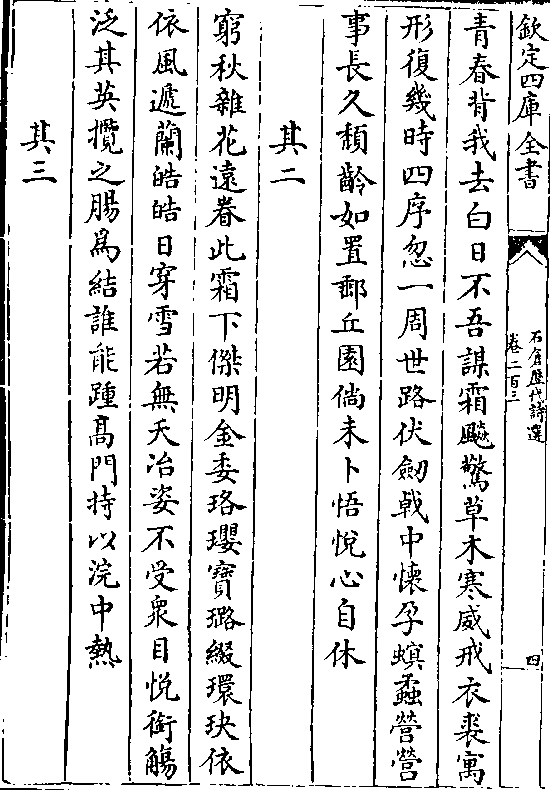 欽定四庫全書
石倉歷代詩選
卷二百三
四
青春背我去白日不吾謀霜飈驚草木寒威戒衣裘寓
形復幾時四序忽一周世路伏劒戟中懷孕螟蟊營營
事長久頽齡如置郵丘園倘未卜悟悅心自休
其二
窮秋雜花遠眷此霜下傑明金委珞瓔寶璐綴環玦依
依風遞蘭皓皓日穿雪若無天冶姿不受衆目悅銜觴
泛其英攬之腸爲結誰能踵高門持以浣中熱
其三